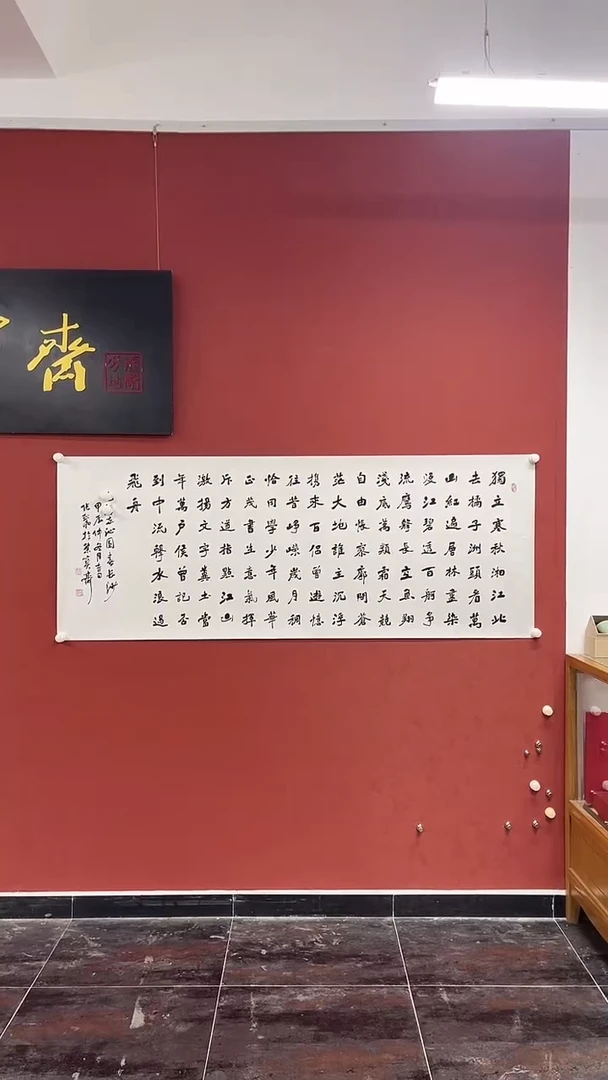 齋
獨立寒秋湘江北
去橘子洲頭看萬
山紅遍層林盡染
漫江碧透百舸爭
流鷹擊長空魚翔
淺底萬類霜天競
自由悵寥廓問蒼
茫大地誰主沉浮
携來百侶曾遊憶
往昔崢嶸歲月稠
恰同學少年風華
正茂書生意氣揮
斥方遒指點江山
激揚文字糞土當
年萬戶侯曾記否
到中流擊水浪遏
飛舟
沁園春長沙
甲辰冬月
於榮寶齋